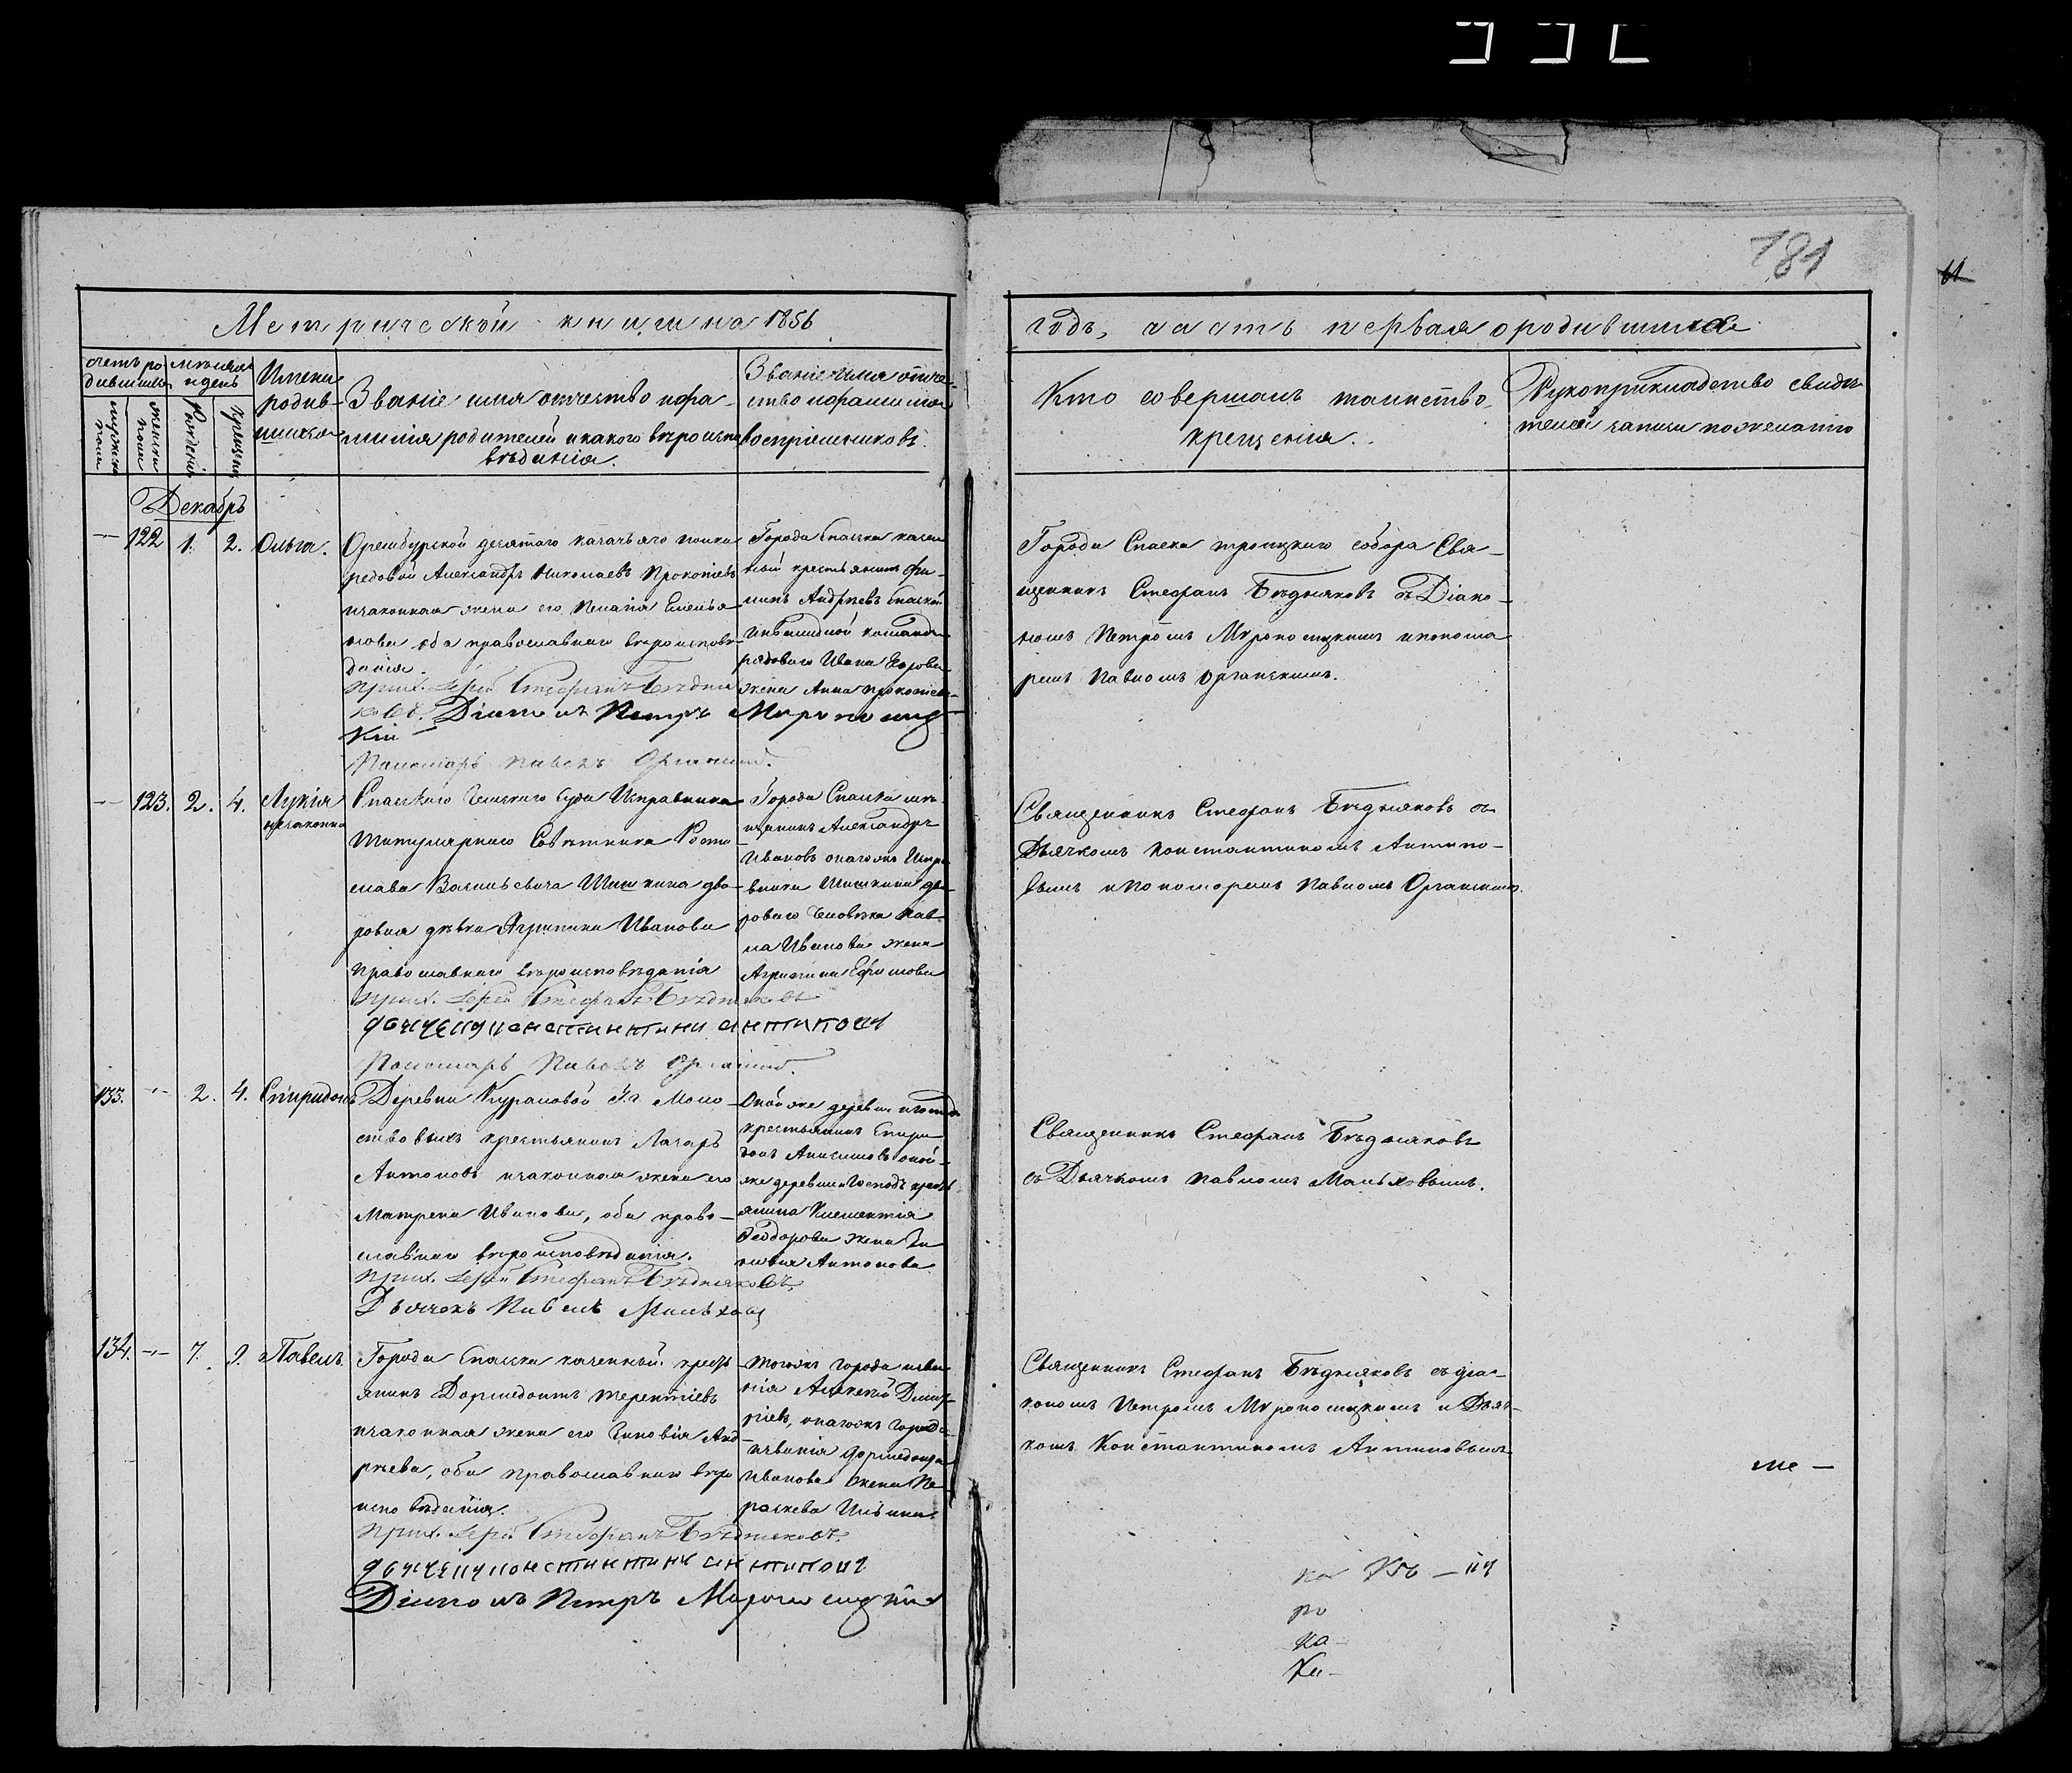 181
Метрической книги на 1856
годъ, часть первая о родившихся
счетъ ро-
дившихся
мѣсяцъ
и день
мужеска
пола
женска
пола
Рожденія
Крещенія
Имена
родив-
шихся
Званіе имя отчество и фа-
милія родителей и какого вѣроиспо
вѣданія.
Званіе имя отче-
ство и фамилія
воспріемниковъ.
Кто совершалъ таинство
крещенія.
Рукоприкладство свидѣ
телей записи по желанію
Декабрь
122
1.
2.
Ольга.
Оренбурской десятаго казачьяго полка
редовой Александръ Николаевъ Прокопіевъ
и законная жена его Пелагія Емелья
нова оба православнаго вѣроисповѣ-
данія.
Прих. Іерей Стефанъ Бѣдня
ковъ. Діаконъ Петръ Мироносиц
кій
Пономарь Павелъ Органскій.
Города Спаска казен
ный крестьянинъ Фи-
липъ Андреевъ Спаской
Инвалидной команды
рядоваго Ивана Егорова
жена Анна Прокопіева
Города Спаска Троицкаго собора Свя-
щенникъ Стефанъ Бѣдняковъ съ Діако-
номъ Петромъ Мѵроносицкимъ и понома
ремъ Павломъ Органскимъ.
123.
2.
4.
Лукія
незаконна
Спаскаго Земскаго Суда Исправника
Титулярнаго Совѣтника Рости
слава Васильевича Шишкина дво-
ровая дѣвка Агрипина Иванова
православнаго вѣроисповѣданія
Прих. Іерей Стефанъ Бѣдняковъ
дьячекъ Константинъ Антиповъ
Пономарь Павелъ Органскій.
Города Спаска мѣ-
щанинъ Александръ
Ивановъ онагожъ Испра
вника Шишкина дво-
роваго человѣка Пав
ла Иванова жена
Агрипина Ефимова
Священникъ Стефанъ Бѣдняковъ съ
Дьячкомъ Константиномъ Антипо-
вымъ и Пономаремъ Павломъ Органскимъ.
133.
2.
4.
Спиридонъ
Деревни Кураповой Г.г. Моло
ствовыхъ крестьянинъ Лазарь
Антоновъ и законная жена его
Матрена Иванова, оба право-
славнаго вѣроисповѣданія.
Прих. Іерей Стефанъ Бѣдняковъ.
Дьячокъ Павелъ Мальховъ
Оной же деревни и господъ
крестьянинъ Спири
донъ Анисимовъ оной-
же деревни и Господъ кресть
янина Климентія
Ѳеодорова жена Зи
новія Антонова
Священникъ Стефанъ Бѣдняковъ
съ Дьячкомъ Павломъ Мальховымъ.
134.
7.
9.
Павелъ.
Города Спаска казенный кресть
янинъ Дормедонтъ Терентіевъ
и законная жена его Зиновія Анд
рѣева, оба православнаго вѣро
исповѣданія.
Прих. Іерей Стефанъ Бѣдняковъ.
дьячекъ Константинъ Антиповъ
Діаконъ Петръ Мироносицкій
Тогожъ города и зва
нія Алексѣй Дмит
ріевъ, онагожъ города
и званія Дормедонта
Иванова жена Па
раскева Ильина.
Священникъ Стефанъ Бѣдняковъ съ діа-
кономъ Петромъ Мѵроносицкимъ и Дьяч-
комъ Константиномъ Антиповымъ
ро
ка